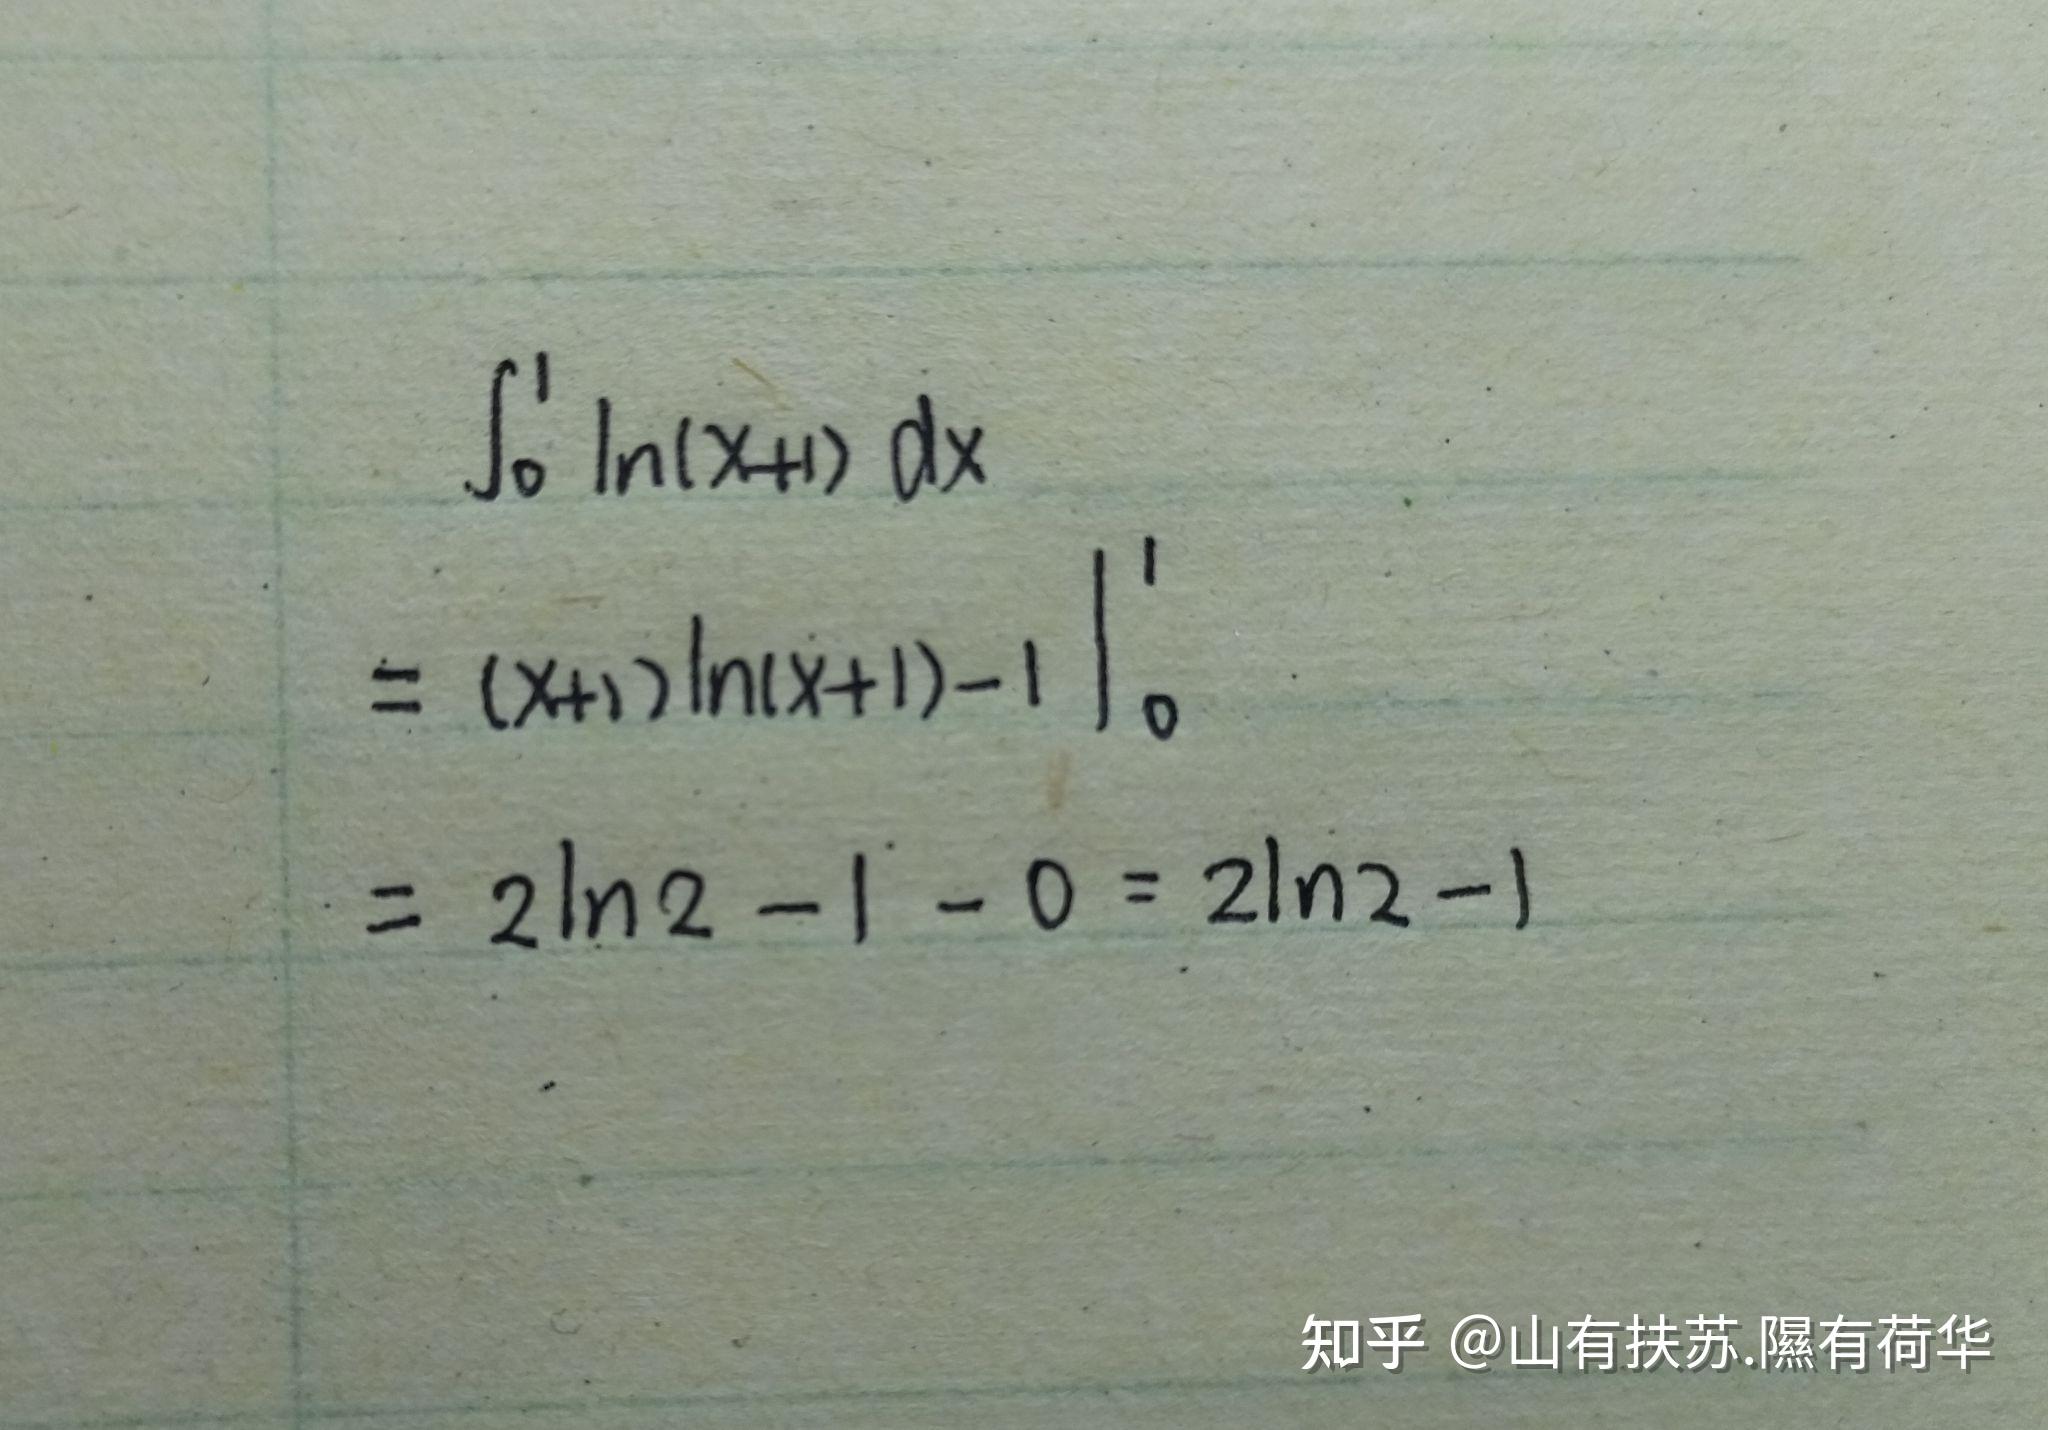 ∫₀¹ ln(x+1) dx
= (x+1)ln(x+1)-1 |₀¹
= 2ln2 - 1 - 0 = 2ln2 - 1
知乎 @山有扶苏.隰有荷华